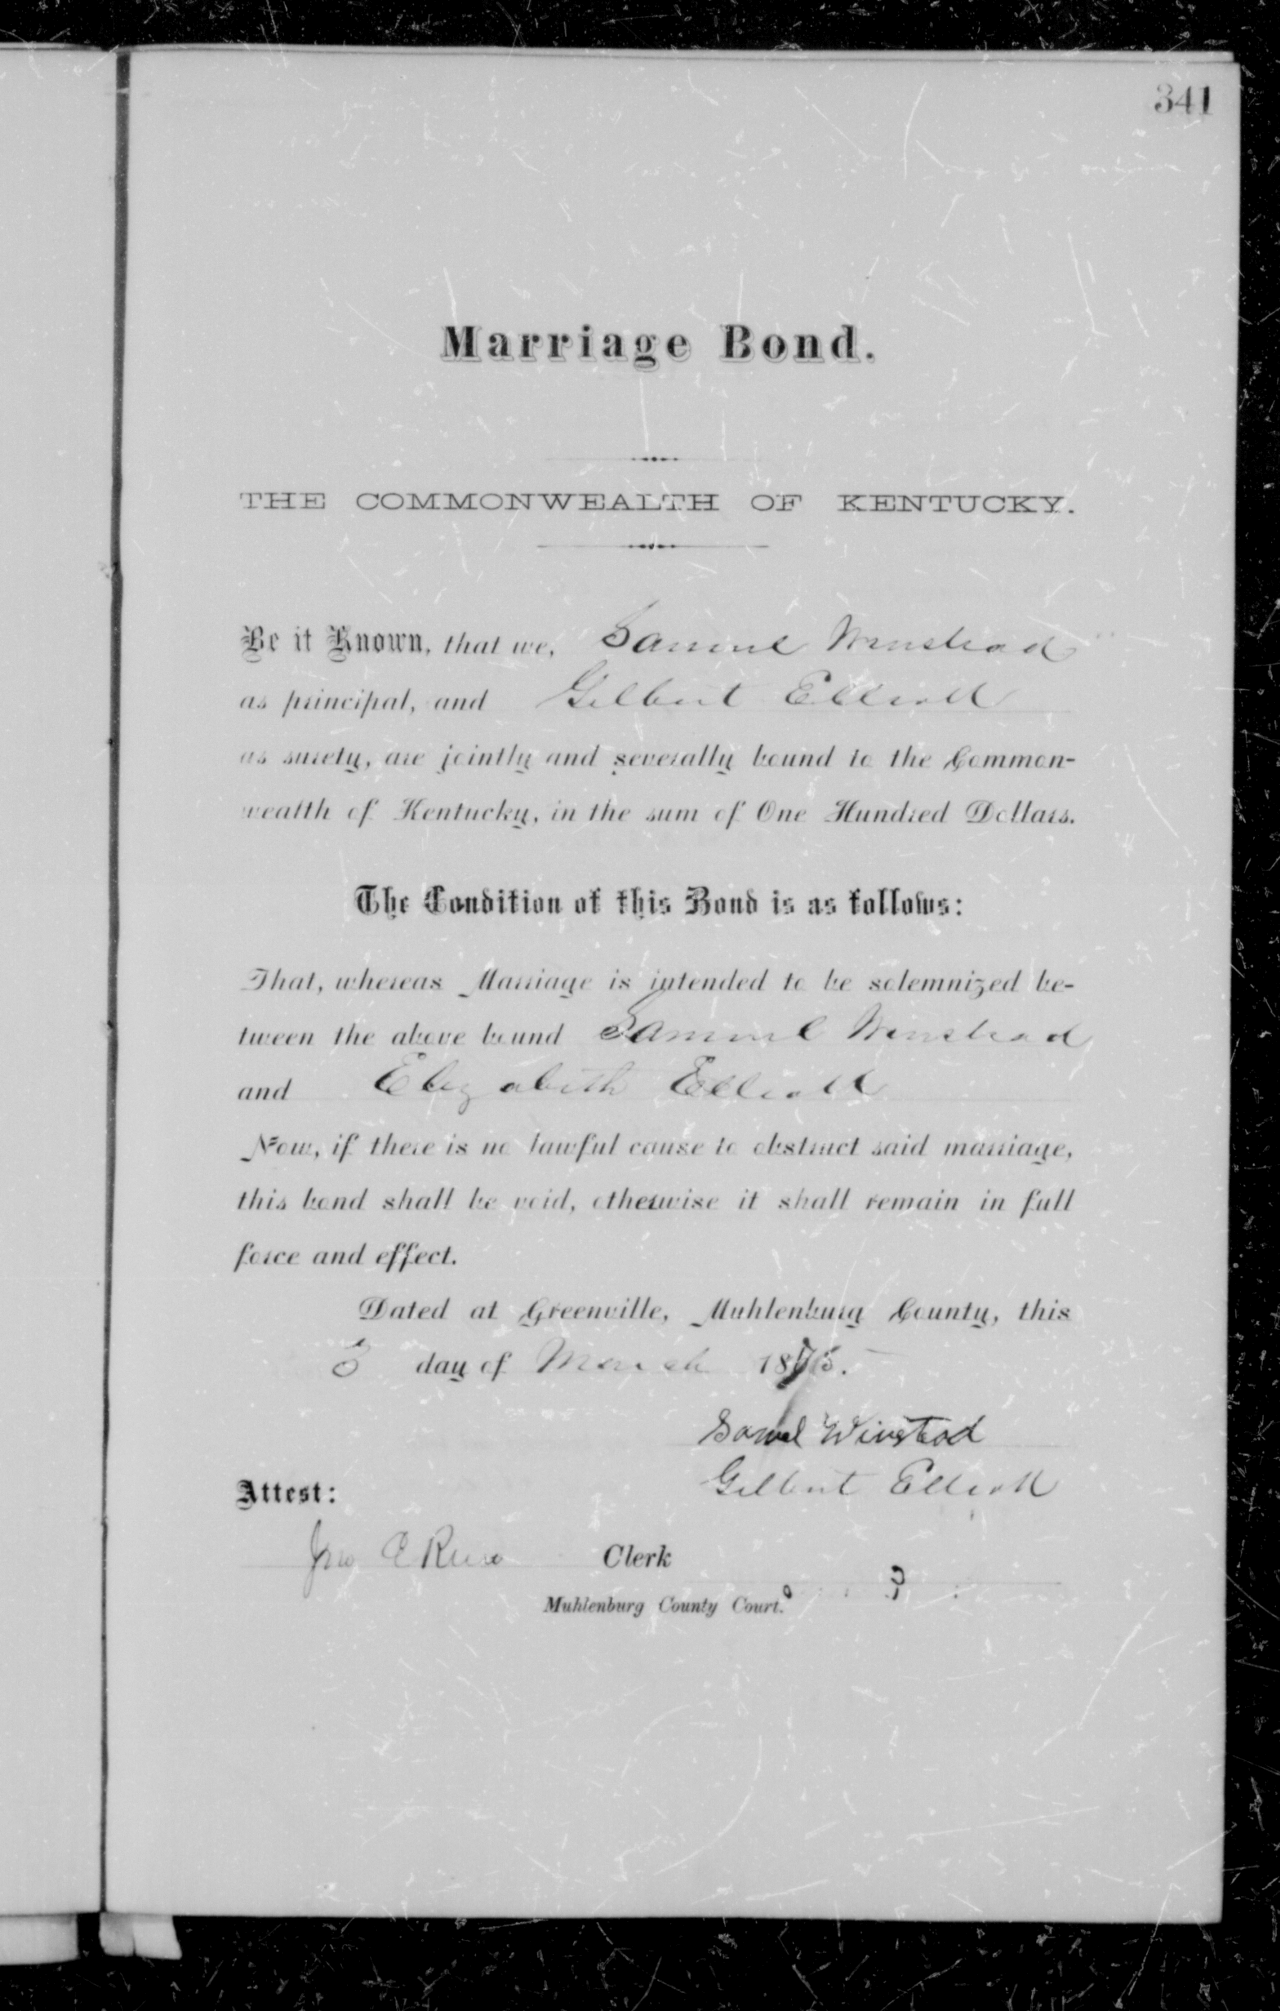 341
Marriage Bond.
THE COMMONWEALTH OF KENTUCKY.
Be it Known, that we, Samuel Winstead
as principal, and Gilbert Elliott
as surety, are jointly and severally bound to the Common-
wealth of Kentucky, in the sum of One Hundred Dollars.
The Condition of this Bond is as follows:
That, whereas Marriage is intended to be solemnized be-
tween the above bound Samuel Winstead
and Elizabeth Elliott
Now, if there is no lawful cause to obstruct said marriage,
this bond shall be void, otherwise it shall remain in full
force and effect.
Dated at Greenville, Muhlenburg County, this
day of March 187
Samel Winstod
Gilbert Elliott
Attest:
Jno Clerk
Muhlenburg County Court.